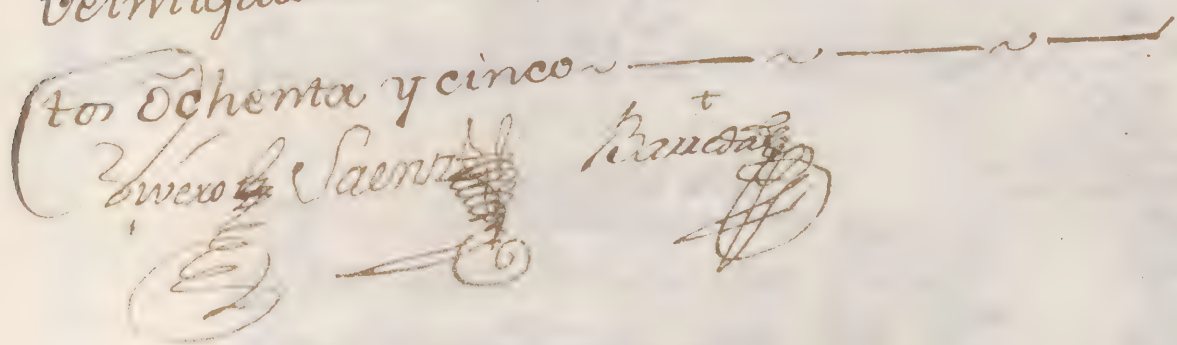 tos ochenta y cinco ~ — ~ — ~ —
Vivero Saenz